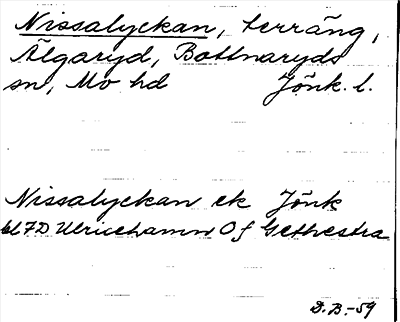 Nissalyckan, terräng,
Älgaryd, Bottnaryds
sn, Mo hd Jönk. l.
Nissalyckan ek Jönk
bl 7D Ulricehamn Of
D.B.-59